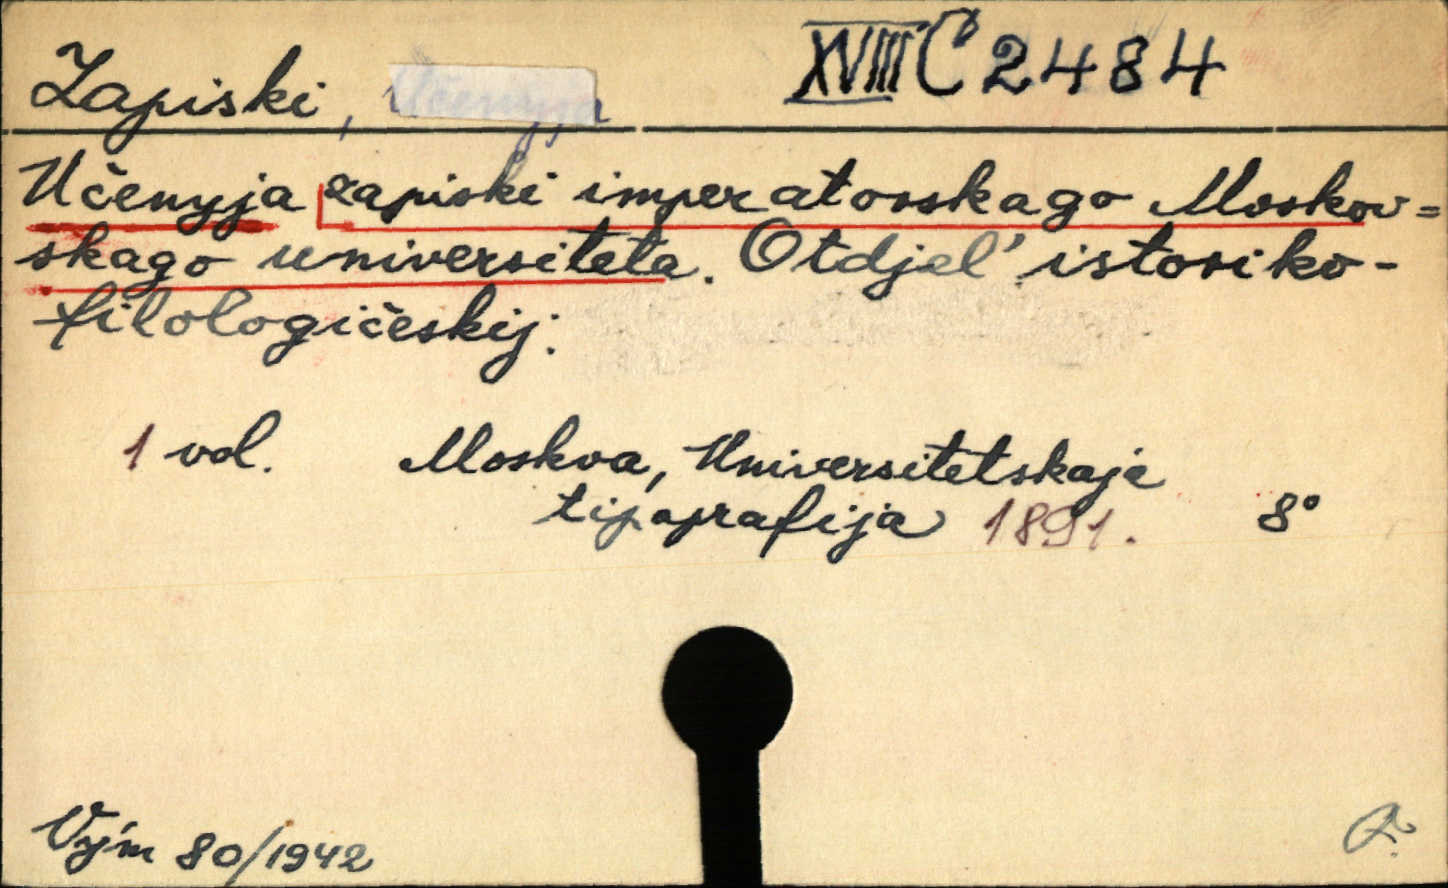 Zapiski, Učenyja
XVIII C 2484
Učenyja zapiski imperatorskago Moskov=
skago universiteta. Otdjel' istoriko-
filologičeskij.
1 vol. Moskva, Universitetskaja
tipografija 1891. 8°
Vým 80/1942